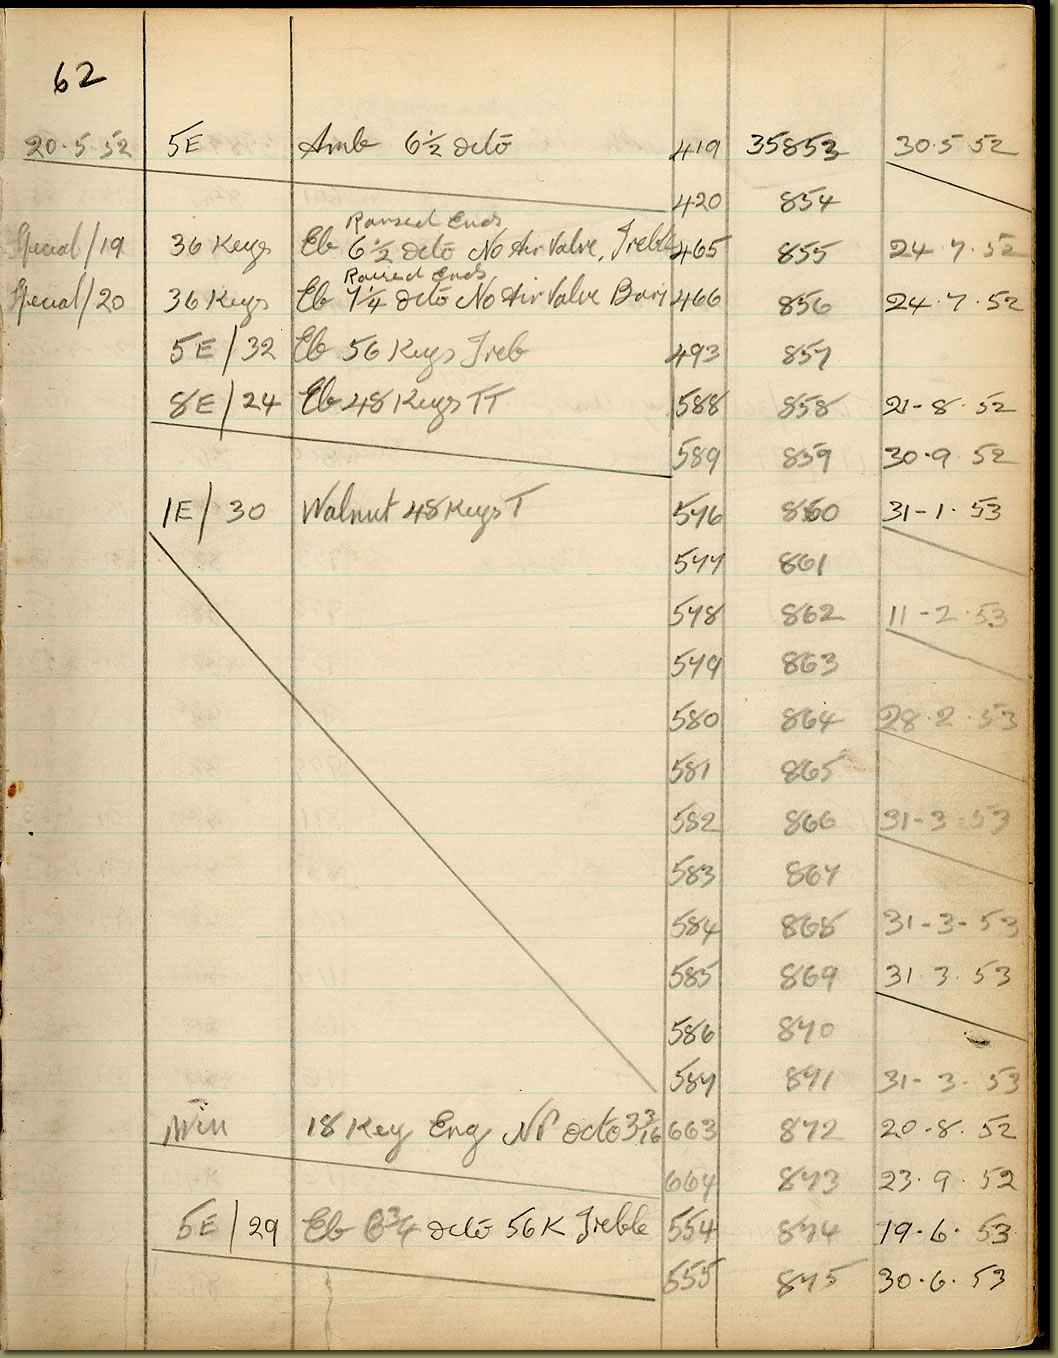 62
20·5·52 5E Amb 6½ Octo 419 35853 30·5·52
420 854
Raised Ends
Special/19 36 Keys Eb 6½ Octo No Air Valve, Treble 465 855 24·7·52
Raised Ends
Special/20 36 Keys Eb 7¼ Octo No Air Valve Bari 466 856 24·7·52
5E/32 Eb 56 Keys Treb 493 857
8E/24 Eb 48 Keys TT 588 858 21-8·52
589 859 30·9·52
1E/30 Walnut 48 Keys T 576 860 31-1·53
577 861
578 862 11-2·53
579 863
580 864 28·2·53
581 865
582 866 31-3·53
583 867
584 868 31-3-53
585 869 31·3·53
586 870
587 871 31-3·53
Min 18 Key Eng NP Octo 3 3/16 663 872 20·8·52
664 873 23·9·52
5E/29 Eb 6¾ Octo 56K Treble 554 874 19·6·53
555 875 30·6·53